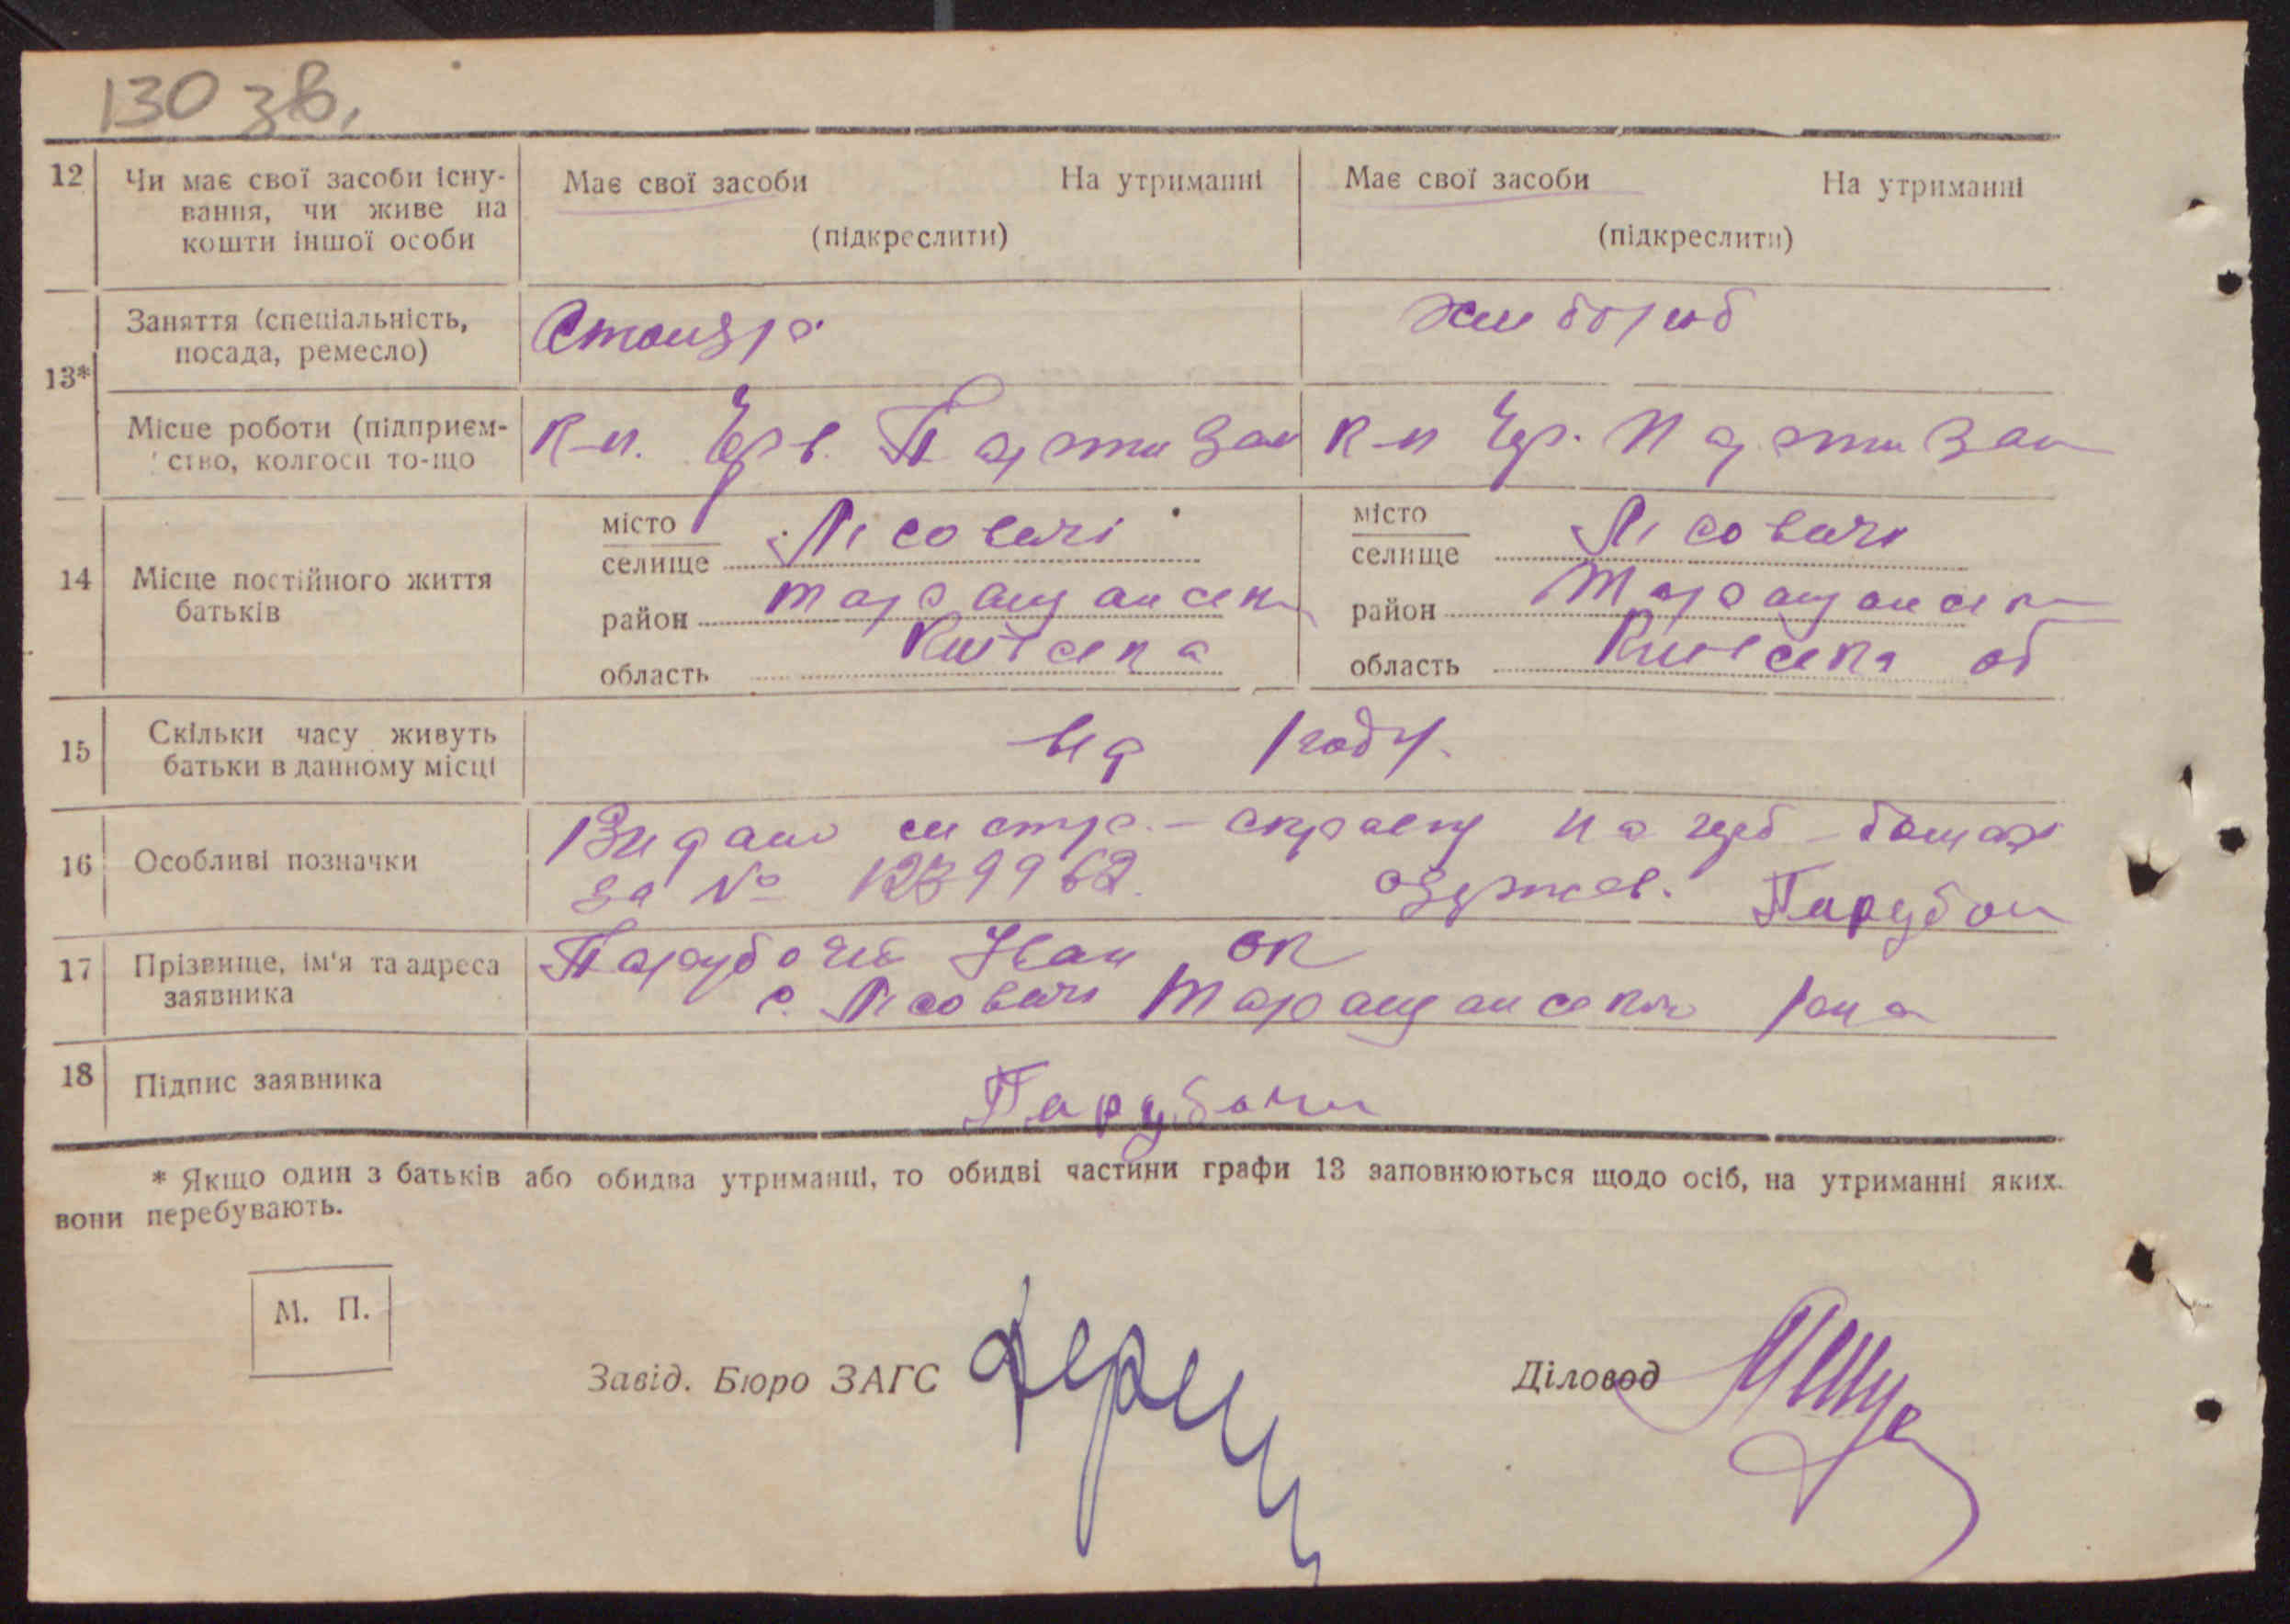 130 зв.
12 Чи має свої засоби існу-
вання, чи живе на
кошти іншої особи
Має свої засоби На утриманні
(підкреслити)
Має свої засоби На утриманні
(підкреслити)
13*
Заняття (спеціальність,
посада, ремесло)
хлібороб
Місце роботи (підприєм-
ство, колгосп то-що
К-п. Чрв. Партизан
К-п Чр. Партизан
14 Місце постійного життя
батьків
місто
селище Лісовичі
район Таращанськ
область Київська
місто
селище Лісовичі
район Таращанськ
область Київська об
15 Скільки часу живуть
батьки в данному місці
від роду.
16 Особливі позначки
Видано
за № 1239962. одержав. Парубоч
17 Прізвище, ім'я та адреса
заявника
Парубочий Іван
с. Лісовичі Таращанськ р-на
18 Підпис заявника
Парубочи
* Якщо один з батьків або обидва утриманці, то обидві частини графи 13 заповнюються щодо осіб, на утриманні яких
вони перебувають.
М. П.
Завід. Бюро ЗАГС
Діловод